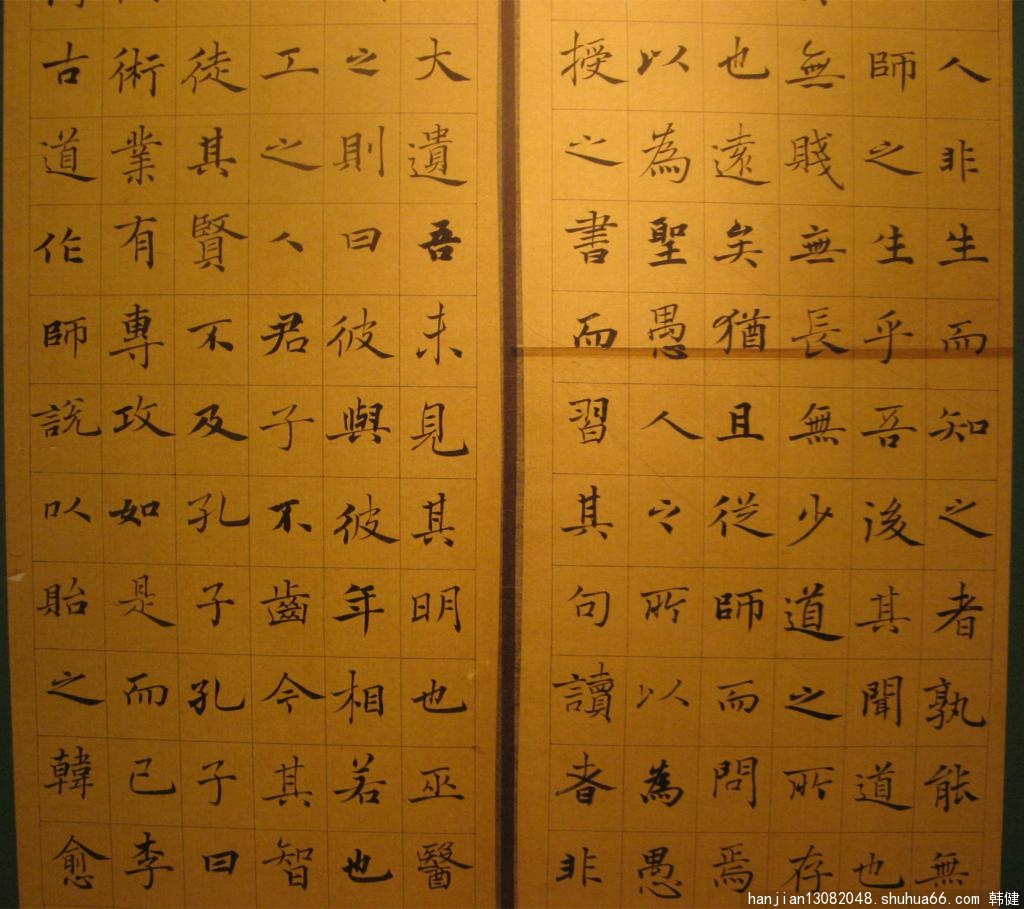 人非生而知之者孰能無
師之生乎吾後其聞道也
無賤無長無少道之所存
也遠矣猶且從師而問焉
以為聖愚人之所以為愚
授之書而習其句讀者非
大遺吾未見其明也巫醫
之則曰彼與彼年相若也
工之人君子不齒今其智
徒其賢不及孔子孔子曰
術業有專攻如是而已李
古道作師說以貽之韓愈
hanjian13082048.shuhua66.com 韩健